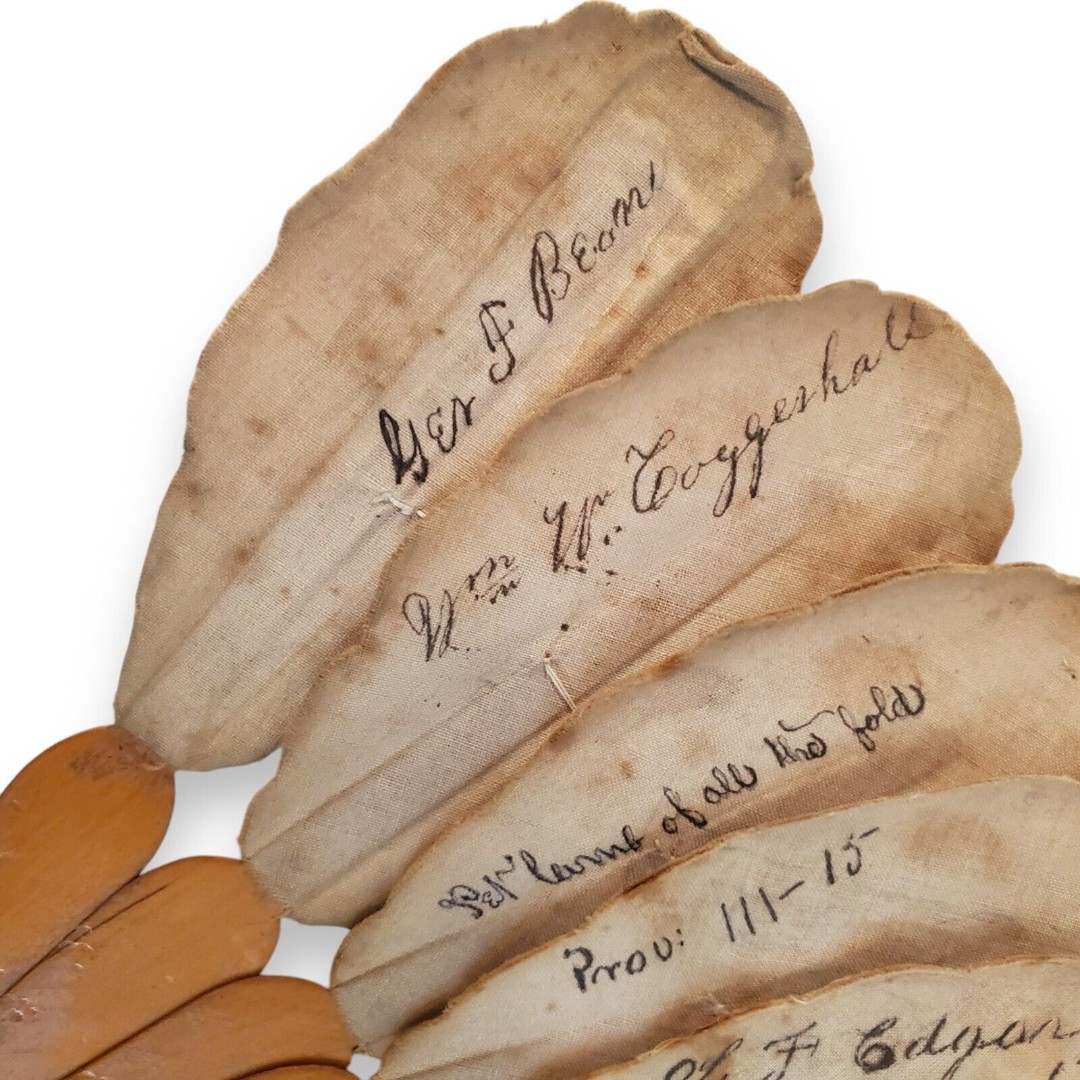 Geo F Bean
Wm W. Coggeshall
Pet lamb of all the fold
Prov: 111-15
F Edgar